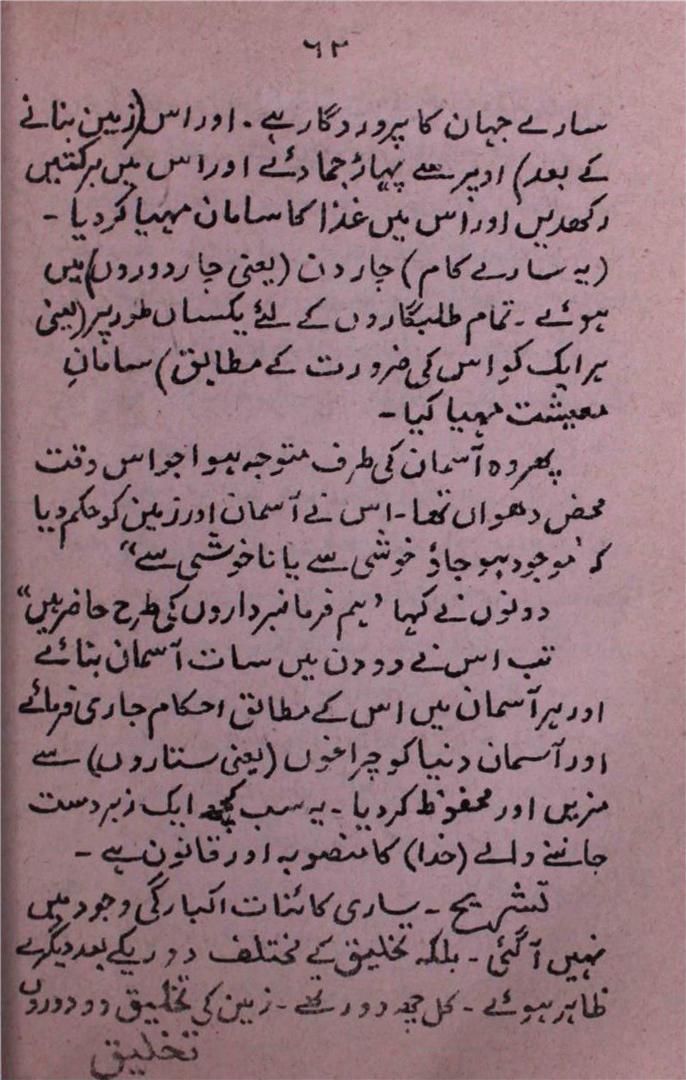 ٦٢
سارے جہان کا پروردگار ہے۔ اور اس (زمین بنانے
کے بعد) اوپر سے پہاڑ جما دئے اور اس میں برکتیں
رکھدیں اور اس میں غذا کا سامان مہیا کر دیا۔
(یہ سارے کام) چار دن (یعنی چار دوروں) میں
ہوئے۔ تمام طلبگاروں کے لئے یکساں طور پر (یعنی
ہر ایک کو اس کی ضرورت کے مطابق) سامانِ
معیشت مہیا کیا۔
پھر وہ آسمان کی طرف متوجہ ہوا جو اس وقت
محض دھواں تھا۔ اس نے آسمان اور زمین کو حکم دیا
کہ ”موجود ہو جاؤ خوشی سے یا ناخوشی سے“
دونوں نے کہا ”ہم فرمانبرداروں کی طرح حاضر ہیں“
تب اس نے دو دن میں سات آسمان بنائے
اور ہر آسمان میں اس کے مطابق احکام جاری فرمائے
اور آسمان دنیا کو چراغوں (یعنی ستاروں) سے
مزین اور محفوظ کر دیا۔ یہ سب کچھ ایک زبردست
جاننے والے (خدا) کا منصوبہ اور قانون ہے۔
تشریح۔ ساری کائنات اکبارگی وجود میں
نہیں آ گئی۔ بلکہ تخلیق کے مختلف دور یکے بعد دیگرے
ظاہر ہوئے۔ کل چھ دور تھے۔ زمین کی تخلیق دو دوروں
تخلیق